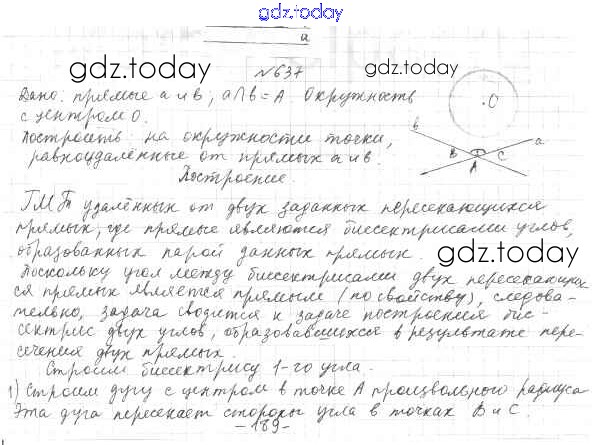 gdz.today
a
№637
gdz.today
gdz.today
Дано: прямые a и b; a∩b = A. Окружность
с центром O.
Построить: на окружности точки,
равноудалённые от прямых a и b.
Построение.
O
b
a
B
C
A
ГМТ удалённых от двух заданных пересекающихся
прямых, где прямые являются биссектрисами углов,
образованных парой данных прямых.
gdz.today
Поскольку угол между биссектрисами двух пересекающих-
ся прямых является прямым (по свойству), следова-
тельно, задача сводится к задаче построения бис-
сектрис двух углов, образовавшихся в результате пере-
сечения двух прямых.
Строим биссектрису 1-го угла.
1) Строим дугу с центром в точке A произвольного радиуса
Эта дуга пересекает стороны угла в точках B и C.
-189-